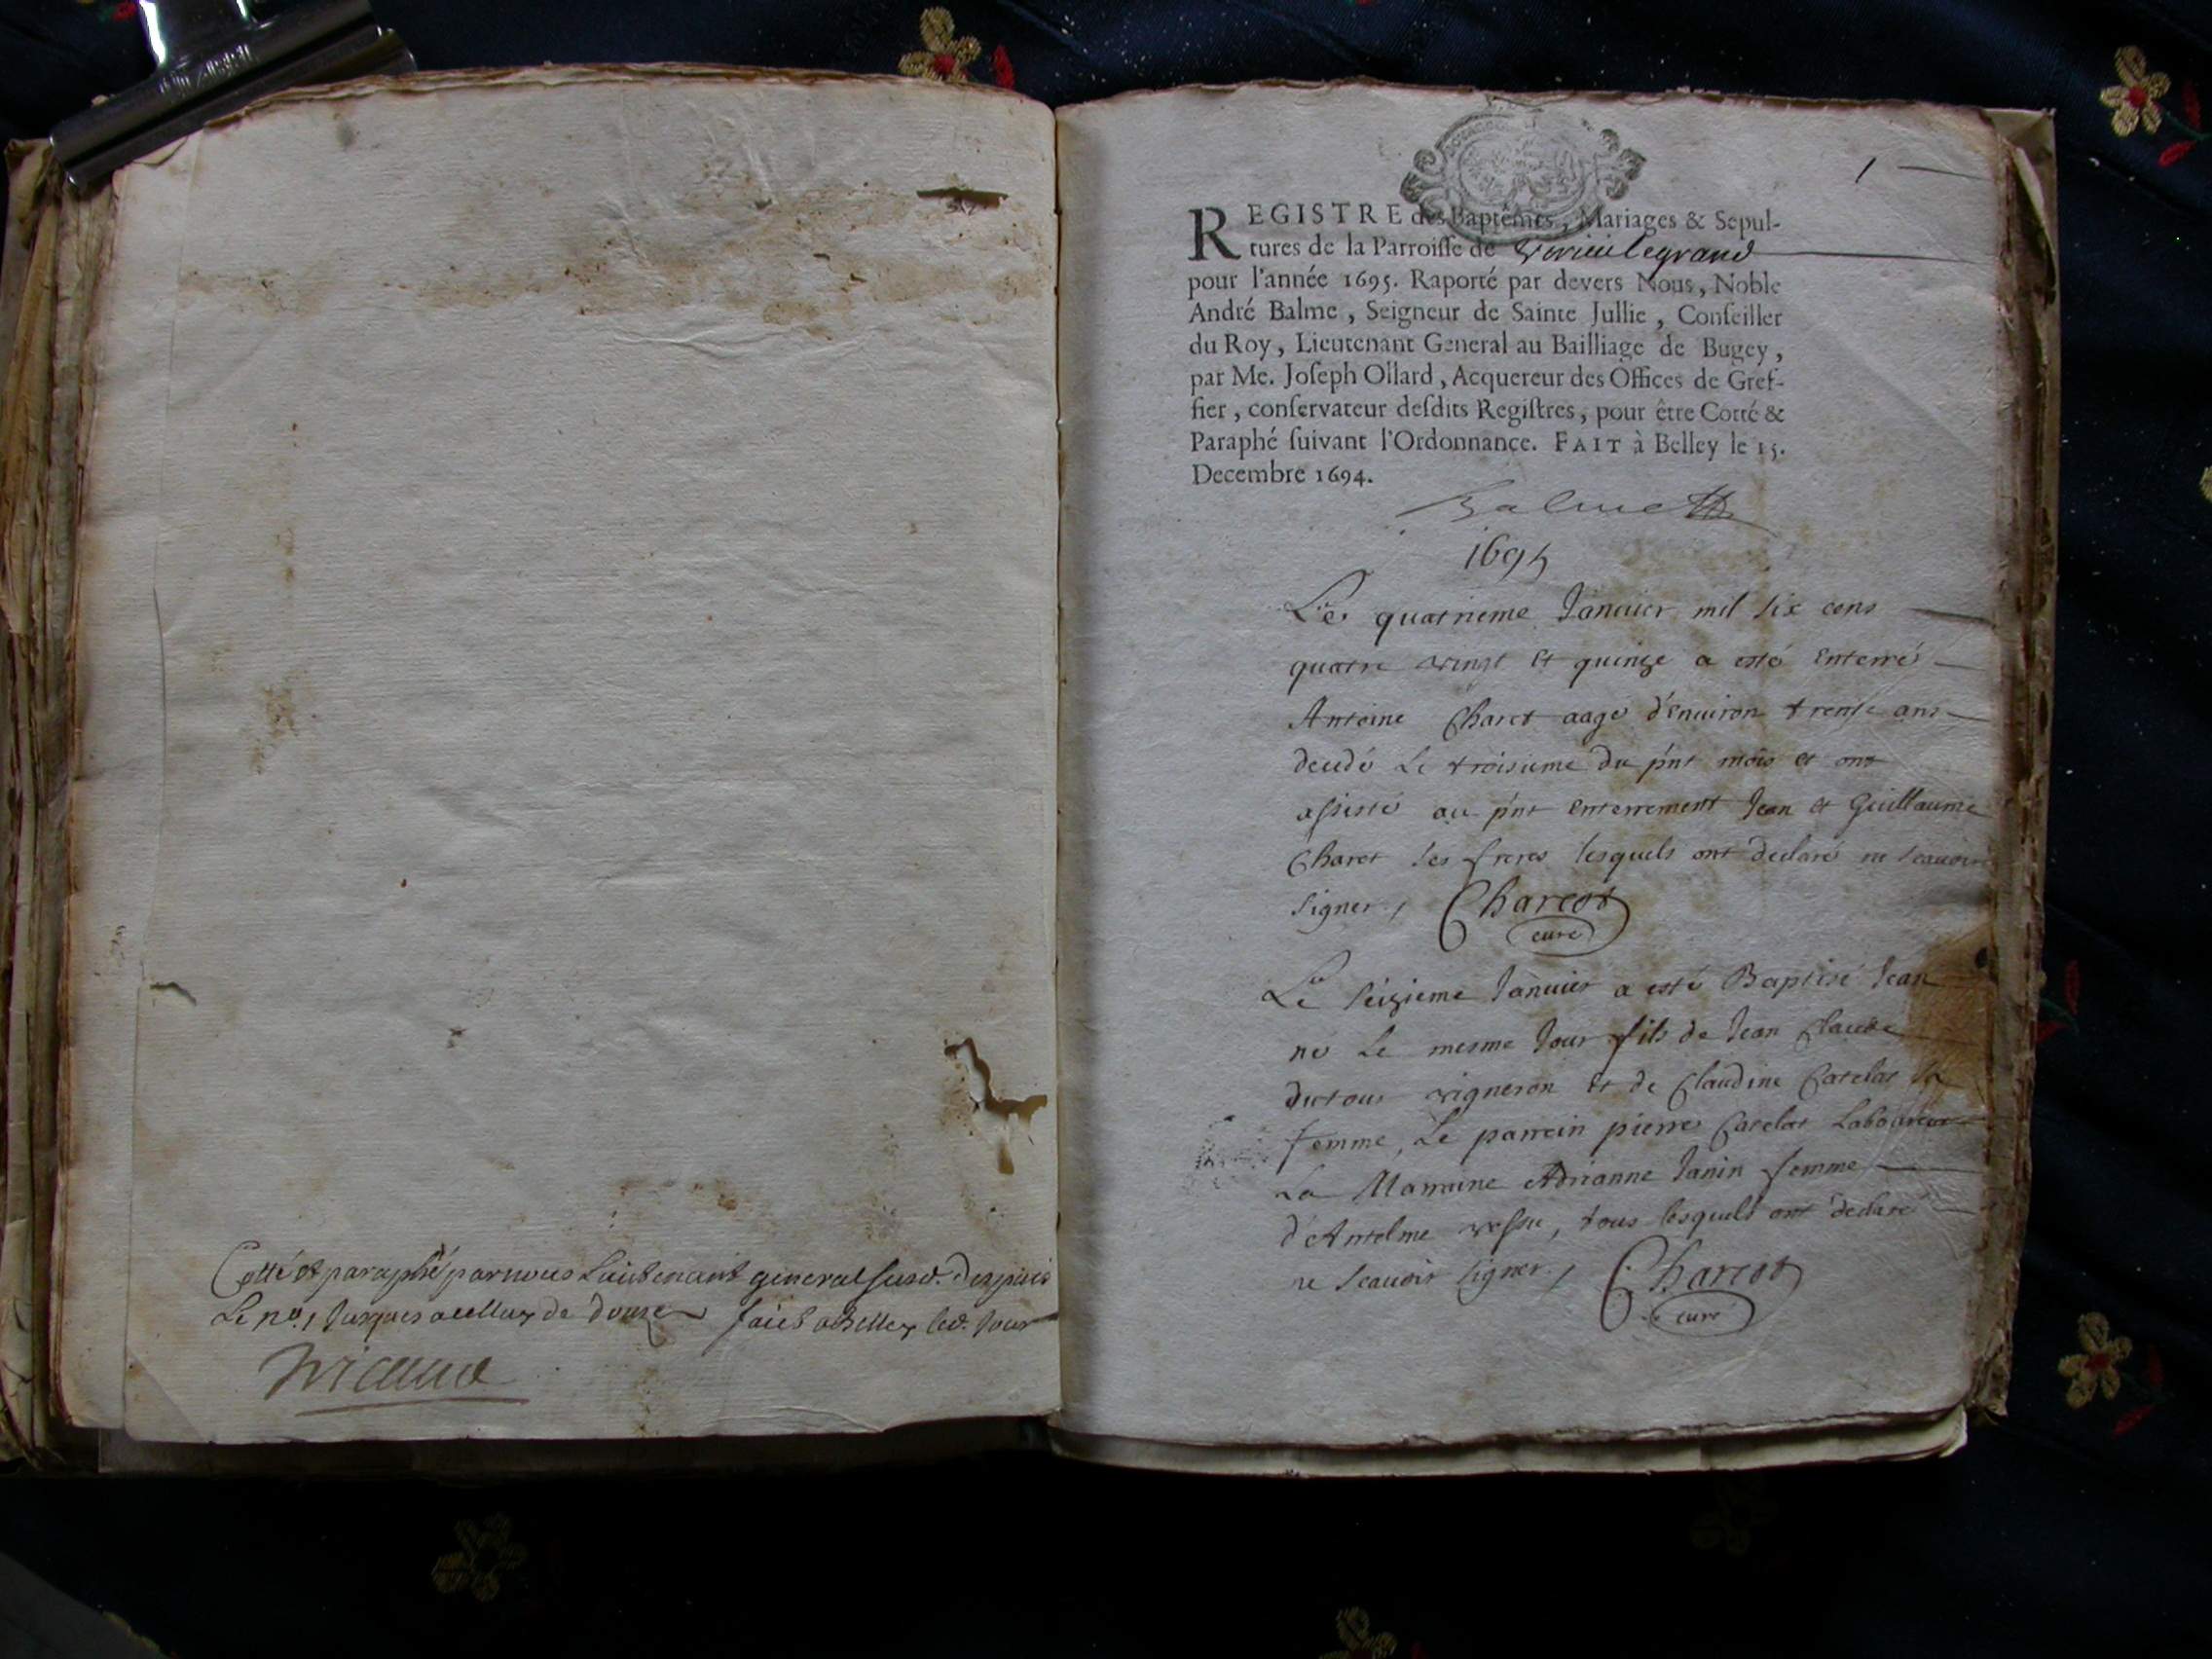 Cotté et paraphé par nous Lieutenant general susd. despuis
Le no. 1 Jusques a celluy de douze faict a Belley led. Jour
1
REGISTRE des Baptêmes, Mariages & Sepul-
tures de la Parroisse de Virieu le grand
pour l'année 1695. Raporté par devers Nous, Noble
André Balme, Seigneur de Sainte Jullie, Conseiller
du Roy, Lieutenant General au Bailliage de Bugey,
par Me. Joseph Ollard, Acquereur des Offices de Gref-
fier, conservateur desdits Registres, pour être Cotté &
Paraphé suivant l'Ordonnance. FAIT à Belley le 15.
Decembre 1694.
Balme
1695
Le quatrieme Januier mil six cens
quatre vingt et quinze a esté enterré
Antoine Charet aagé d'enuiron trense ans
decedé Le troisieme du pnt mois et ont
assisté au pnt enterrement Jean et Guillaume
Charet ses freres lesquels ont declaré ne scauoir
signer, Charcot
curé
Le seizieme Januier a esté Baptisé Jean
né Le mesme Jour fils de Jean Claude
dutour vigneron et de Claudine Catelat sa
femme, Le parrein pierre Catelat Laboureur
La Marraine Adrianne Janin femme
d'Antelme, tous lesquels ont declaré
ne scauoir signer, Charcot
curé